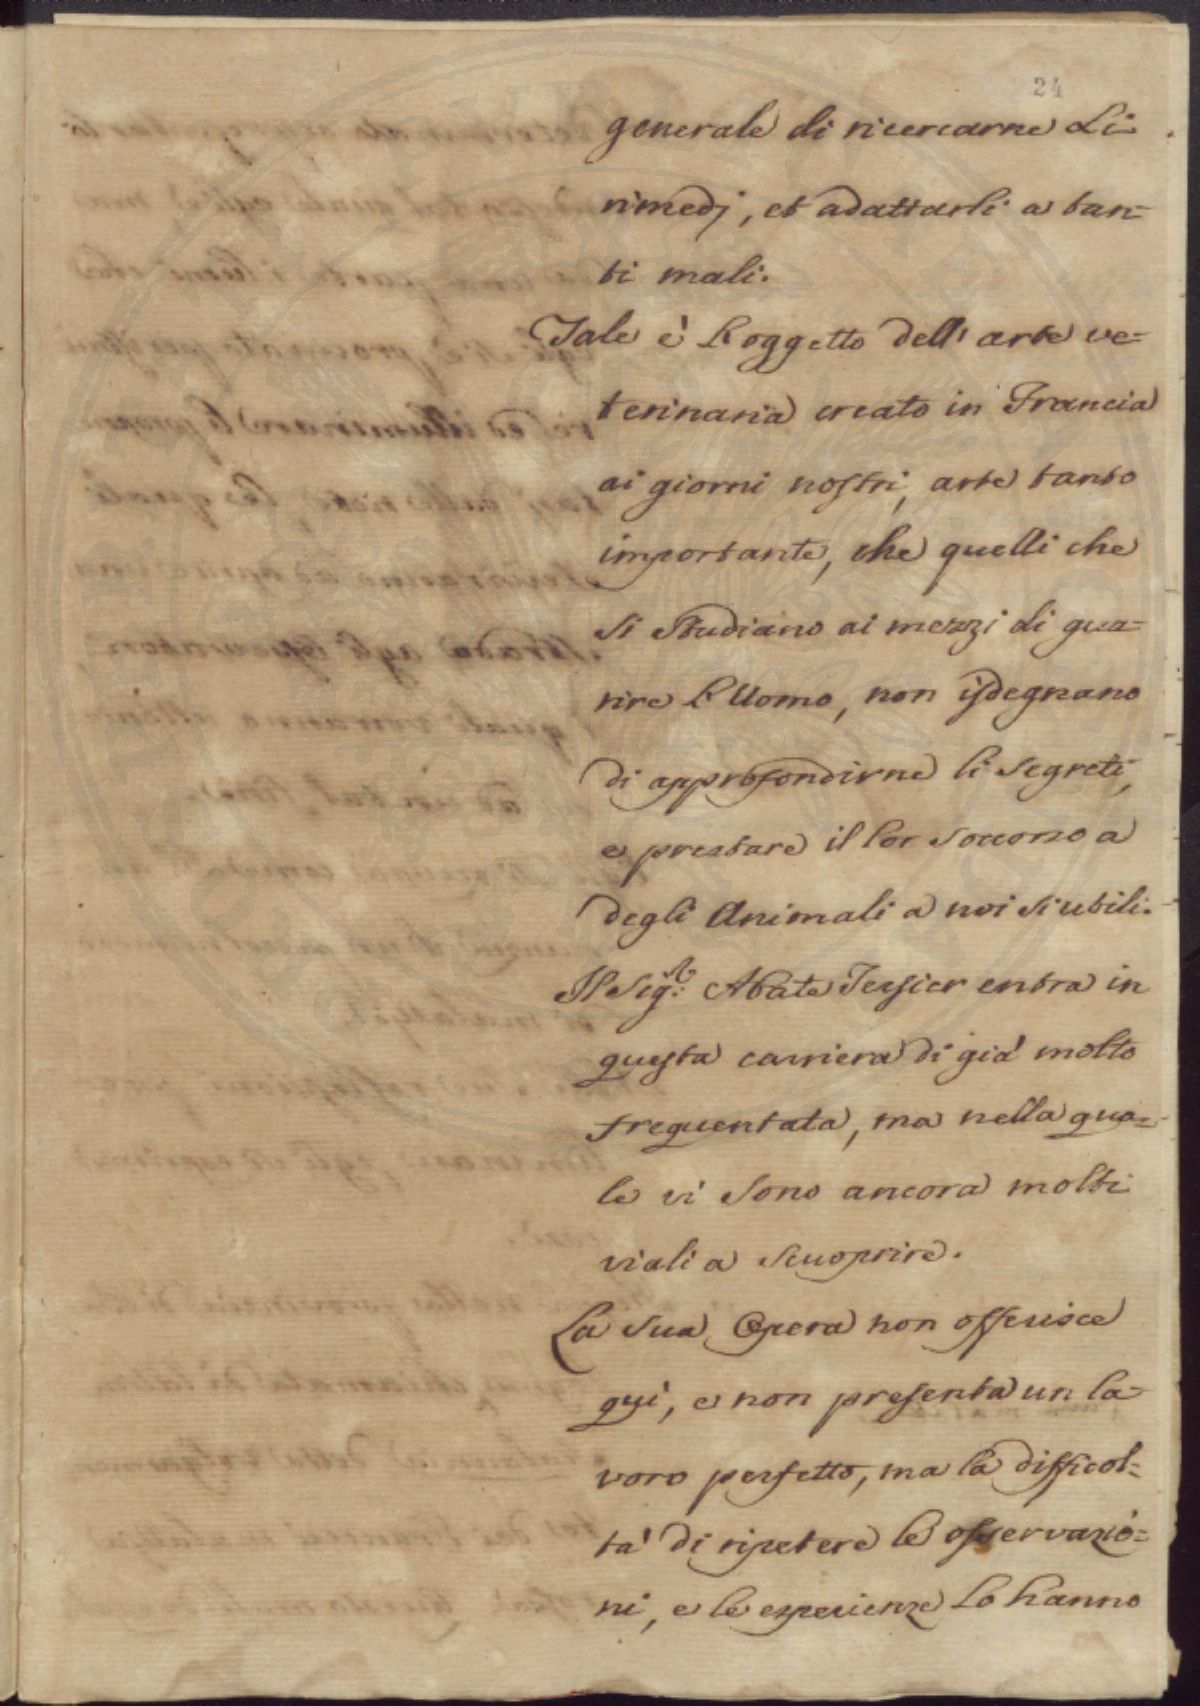 24
generale di ricercarne Li
rimedj, et adattarli a tan=
ti mali.
Tale è L'oggetto dell'arte ve=
terinaria creato in Francia
ai giorni nostri, arte tanto
importante, che quelli che
si studiano ai mezzi di gua=
rire L'Uomo, non isdegnano
di approfondirne li segreti,
e prestare il lor soccorso a
degli Animali a noi si utili.
Il Sigr. Abate Tessier entra in
questa carriera di già molto
frequentata, ma nella qua=
le vi sono ancora molti
viali a scuoprire.
La sua Opera non offerisce
qui, e non presenta un la=
voro perfetto, ma la difficol=
tà di ripetere le osservazio=
ni, e le esperienze Lo hanno